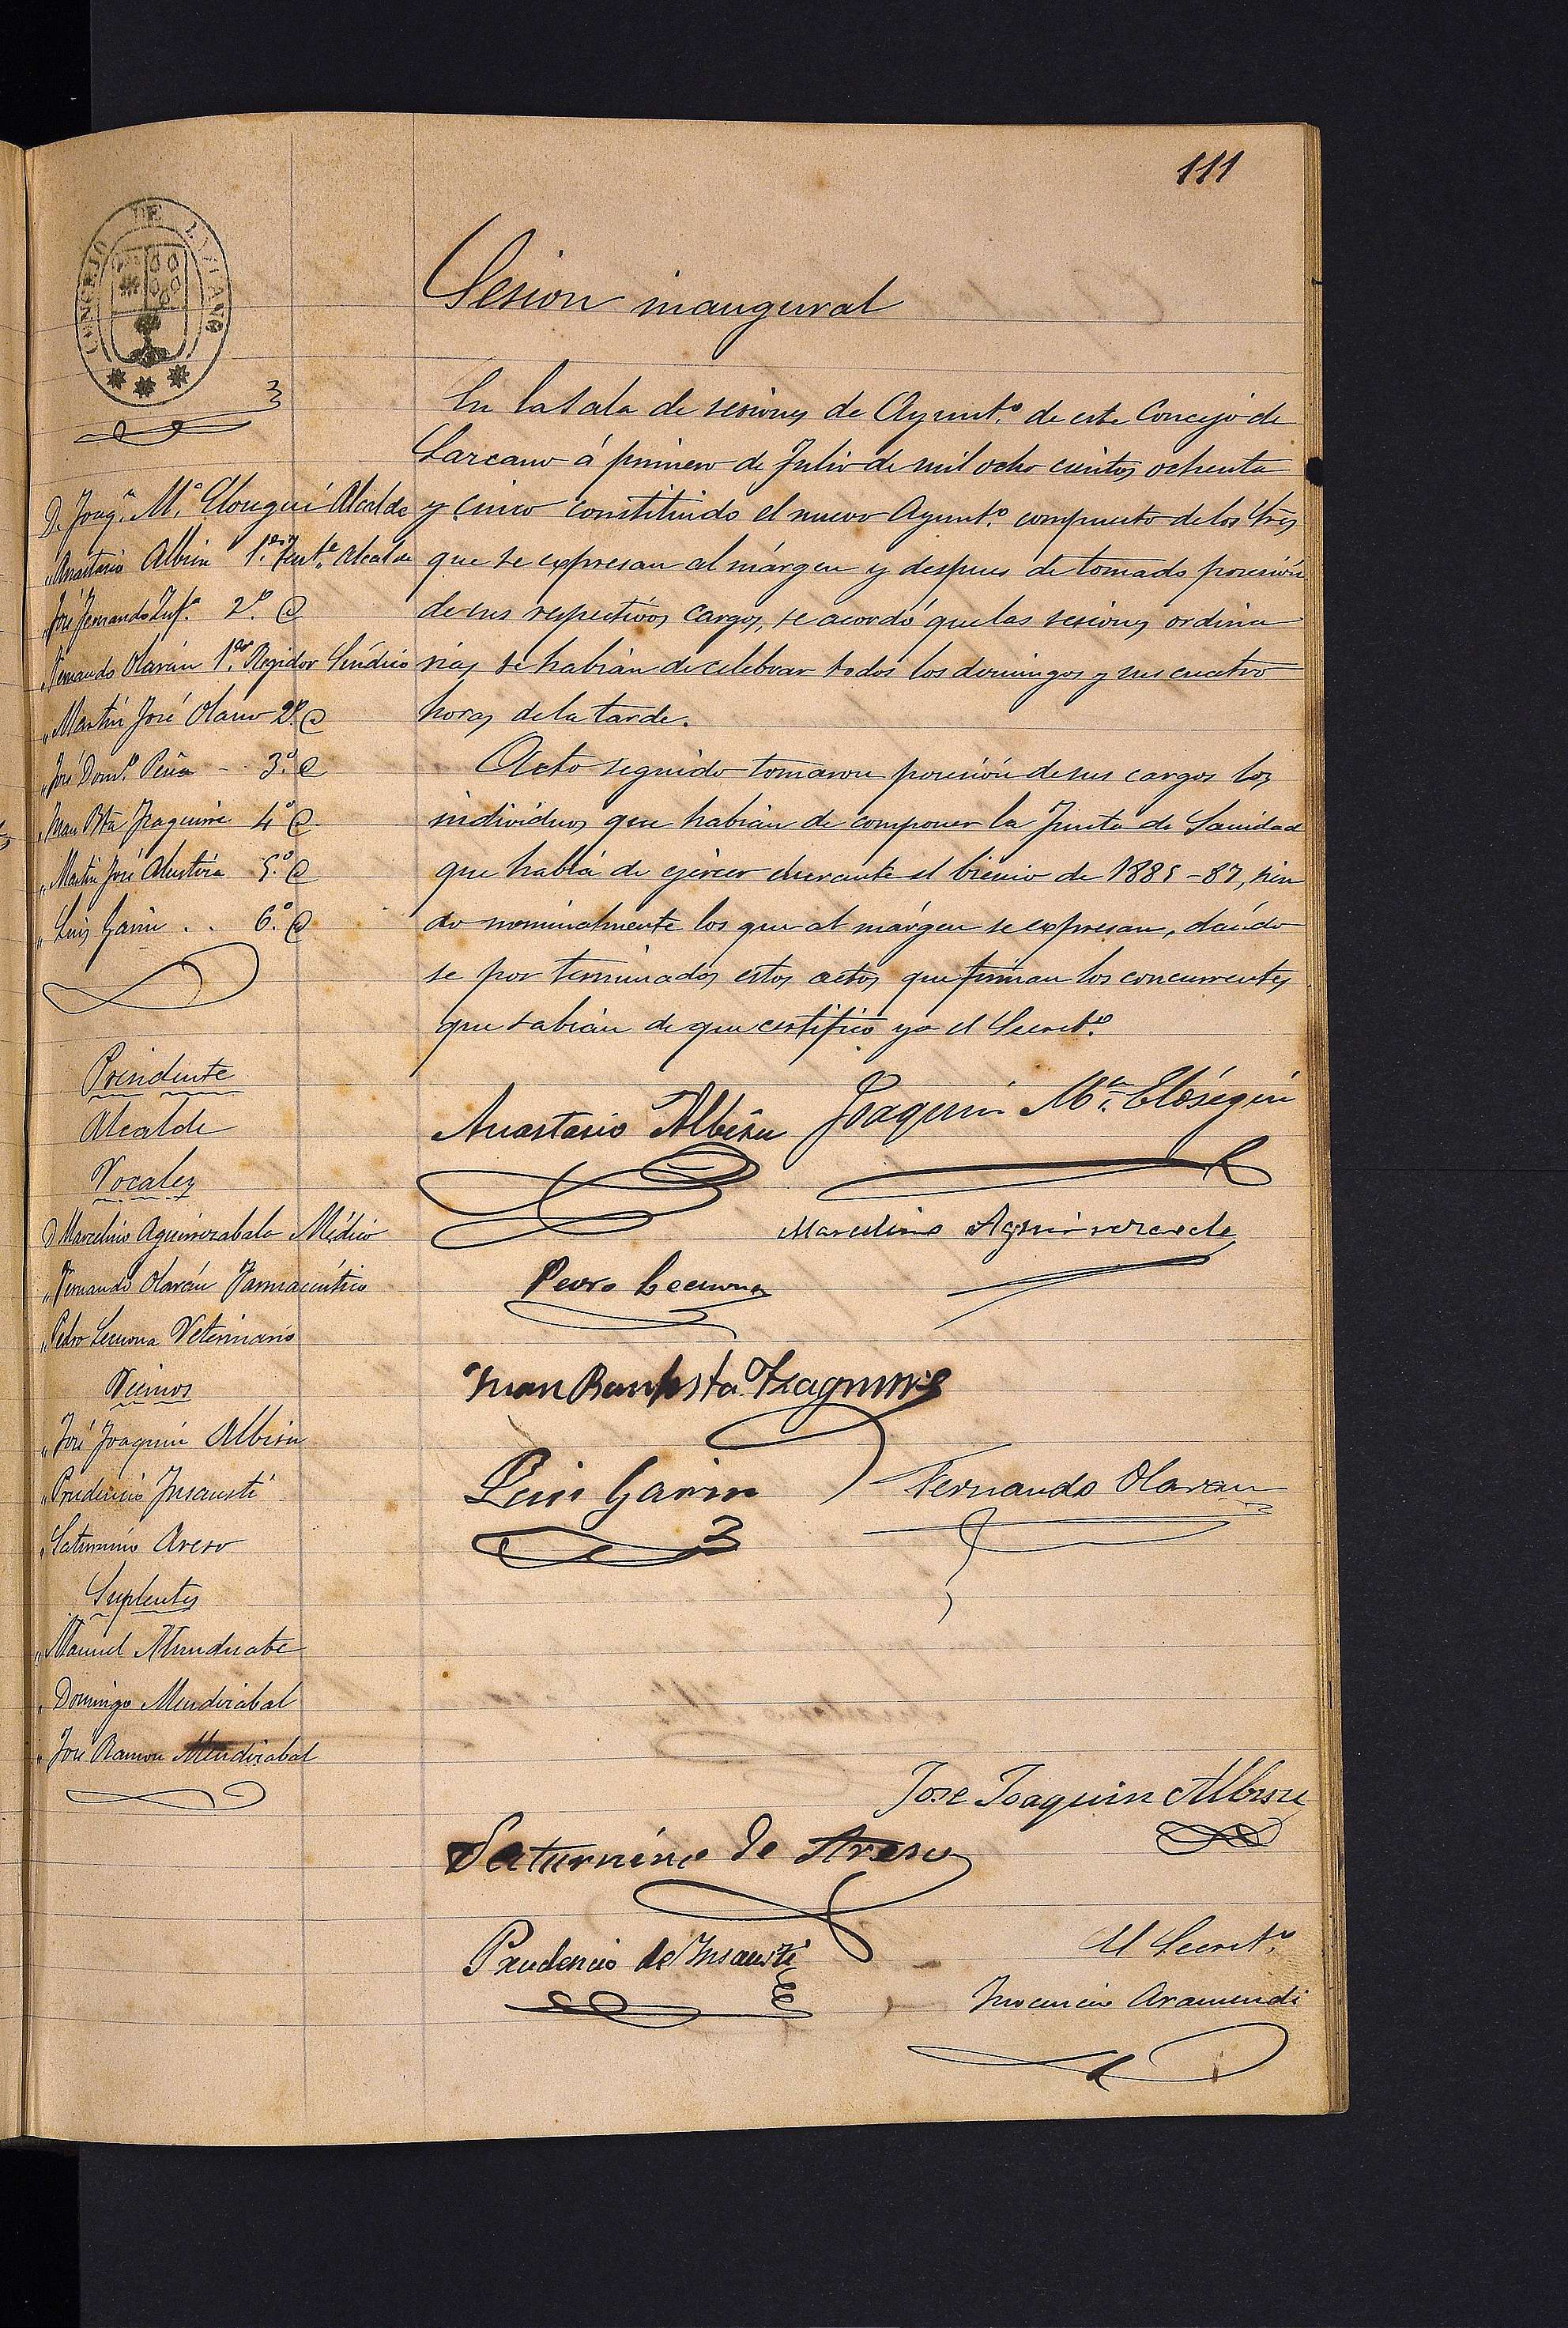 111
CONCEJO DE LAZCANO
Sesion inaugural
En la Sala de sesiones de Ayuntº. de este Concejo de
Lazcano á primero de Julio de mil ocho cientos ochenta
y cinco constituido el nuevo Ayuntº. compuesto de los Sres
que se expresan al márgen y despues de tomado posesión
de sus respectivos cargos, se acordó que las sesiones ordina
rias se habián de celebrar todos los domingos y sus cuatro
horas de la tarde.
Acto seguido tomaron posesión de sus cargos los
individuos que habián de componer la Junta de Sanidad
que habia de ejercer durante el bienio de 1885-87, sien
do nominalmente los que al márgen se expresan, dándo
se por terminados estos actos que firman los concurrentes
que sabián de que certifico yo el Secretº.
D. Joaqn. Mª. Elosegui Alcalde
" Anastasio Albisu 1er. Tente. Alcalde
" José Fernando 2º. @
" Fernando Olarán 1er. Regidor Síndico
" Martin José Olano 2º. @
" José Domº. Peña - 3º. @
" Juan Bta Izaguirre 4º @
" Martin José Alustiza 5º. @
" Luis Garin . . 6º. @
Presidente
Alcalde
Vocales
D Marcelino Aguirrezabala Médico
" Fernando Olarán Farmacéutico
" Pedro Lecuona Veterinario
Vecinos
" José Joaquin Albisu
" Prudencio Insausti
" Saturnino Areso
Suplentes
" Manuel Munduate
" Domingo Mendizabal
" José Ramon Mendizabal
Anastasio Albisu Joaquin Mª. Elósegui
Marcelino Aguirrezabala
Pedro Lecuona
Juan Bautista Izaguirre
Luis Garin Fernando Olaran
Jose Joaquin Albisu
Saturnino de Areso
Prudencio de Insausti
El Secretº.
Inocencio Aramendi